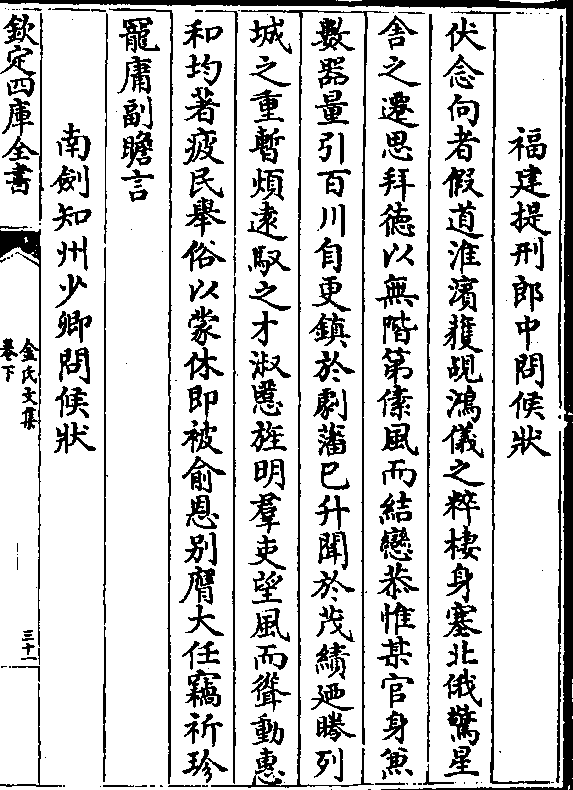 福建提刑郎中問候狀
伏念向者假道淮濱獲覘鴻儀之粹棲身塞北俄驚星
舎之遷思拜徳以無階第傃風而結戀恭惟某官身兼
數器量引百川自更鎮於劇藩已升聞於茂績廼勝列
城之重暫煩逺馭之才淑慝旌明羣吏望風而聳動惠
和均著疲民舉俗以蒙休即被俞恩别膺大任竊祈珍
寵庸副瞻言
南劍知州少卿問候狀
欽定四庫全書
金氏文集
卷下
三十一